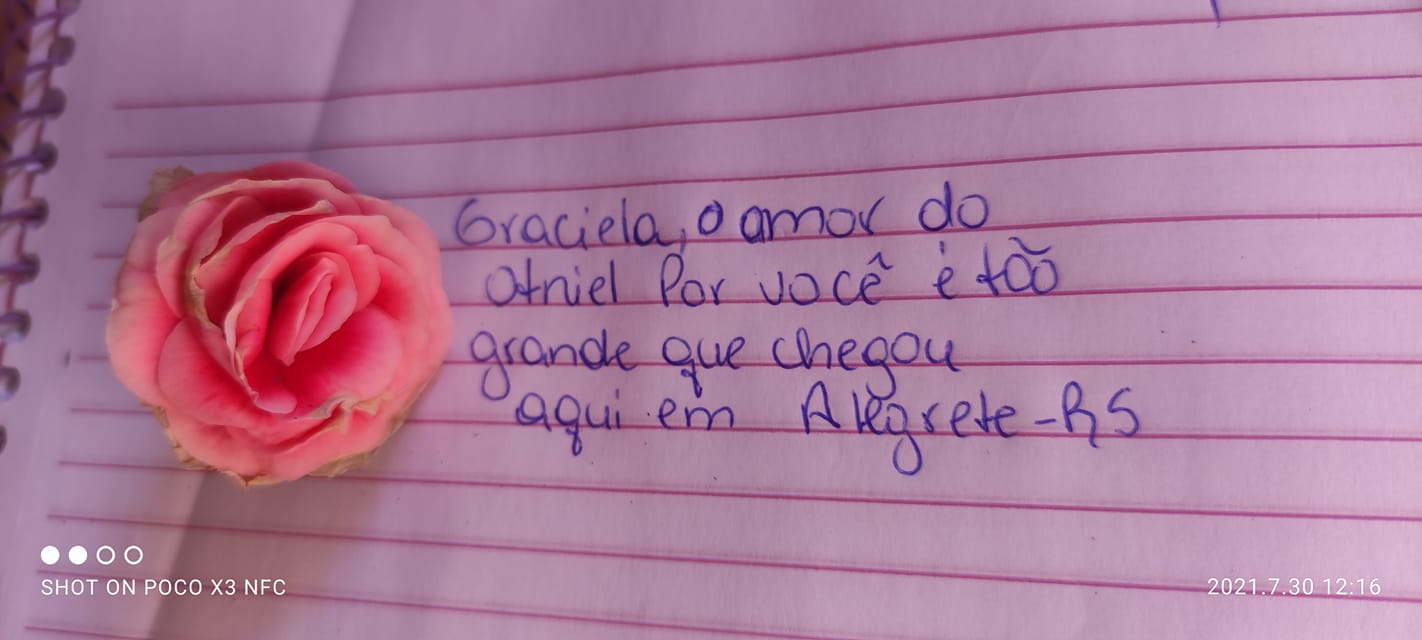 Graciela, o amor do
Otniel Por você é tão
grande que chegou
aqui em Alegrete-RS
SHOT ON POCO X3 NFC
2021.7.30 12:16